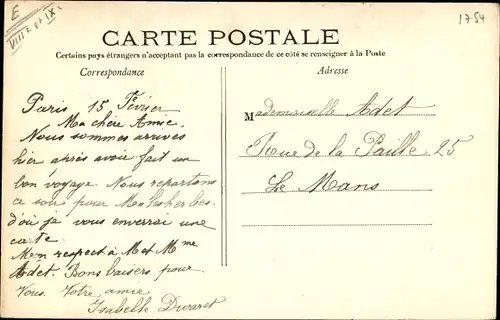 E
VIIIe et IXe
1754
CARTE POSTALE
Certains pays étrangers n'acceptant pas la correspondance de ce côté se renseigner à la Poste
Correspondance
Adresse
Paris 15 Février
Ma chère Amie.
Nous sommes arrivées
hier après avoir fait un
bon voyage. Nous repartons
ce soir pour
d'où je vous enverrai une
carte.
Mon respect à M et Mme
Adet. Bons baisers pour
Vous. Votre amie
Isabelle
Mademoiselle Adet
Rue de la Paille 25
Le Mans